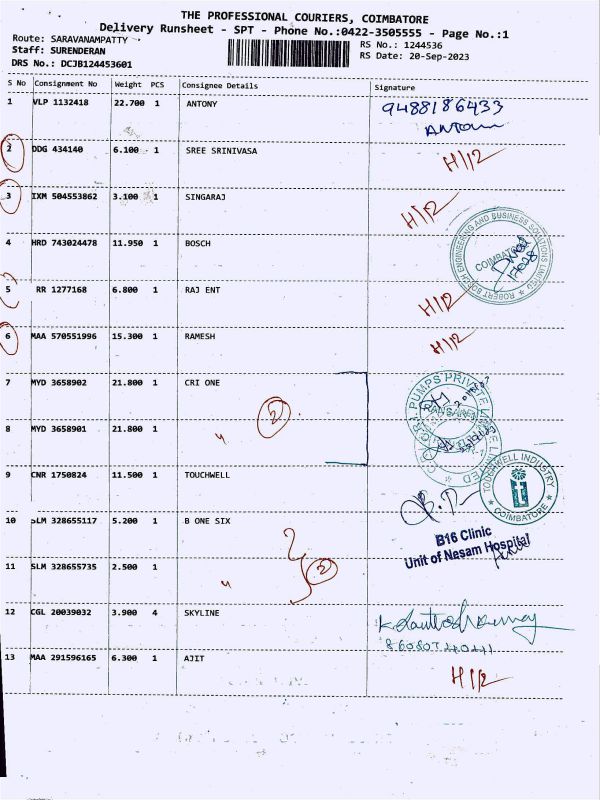 THE PROFESSIONAL COURIERS, COIMBATORE
Delivery Runsheet - SPT - Phone No.:0422-3505555 - Page No.:1
Route: SARAVANAMPATTY
Staff: SURENDERAN
DRS No.: DCJB124453601
RS No.: 1244536
RS Date: 20-Sep-2023
S No Consignment No Weight PCS Consignee Details Signature
1 VLP 1132418 22.700 1 ANTONY 9488186433
2 DDG 434140 6.100 1 SREE SRINIVASA H/12
3 IXM 504553862 3.100 1 SINGARAJ H/12
4 HRD 743024478 11.950 1 BOSCH
ROBERT BOSCH ENGINEERING AND BUSINESS SOLUTIONS LIMITED
COIMBATORE
5 RR 1277168 6.800 1 RAJ ENT H/12
6 MAA 570551996 15.300 1 RAMESH H/12
7 MYD 3658902 21.800 1 CRI ONE
2
8 MYD 3658901 21.800 1 "
9 CNR 1750824 11.500 1 TOUCHWELL
TOUCHWELL INDUSTRY
COIMBATORE
10 SLM 328655117 5.200 1 B ONE SIX
B16 Clinic
Unit of Nesam Hospital
11 SLM 328655735 2.500 1 "
2
12 CGL 20039032 3.900 4 SKYLINE
13 MAA 291596165 6.300 1 AJIT H/12